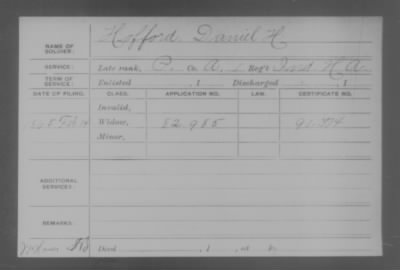 NAME OF SOLDIER: Hofford Daniel H
SERVICE: Late rank, C. Co. A, 1 Reg't H. A.
TERM OF SERVICE: Enlisted , 1 Discharged , 1
DATE OF FILING. CLASS. APPLICATION NO. LAW. CERTIFICATE NO.
Invalid,
Widow, 82.985
Minor,
ADDITIONAL SERVICES:
REMARKS:
Died , 1 , at